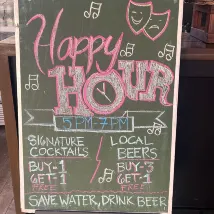 Happy
HOUR
5PM-7PM
SIGNATURE
COCKTAILS
BUY-1
GET-1
FREE
LOCAL
BEERS
BUY-3
GET-1
FREE
SAVE WATER, DRINK BEER